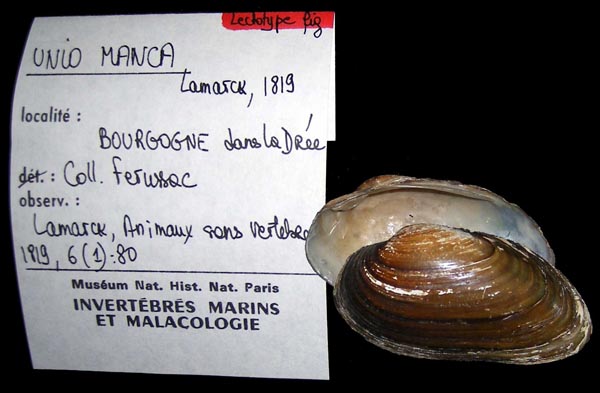 Lectotype fig
UNIO MANCA
Lamarck, 1819
localité :
BOURGOGNE dans la Drée
dét. : Coll. Ferussac
observ. :
Lamarck, Animaux sans Vertebre
1819, 6 (1) : 80
Muséum Nat. Hist. Nat. Paris
INVERTÉBRÉS MARINS
ET MALACOLOGIE